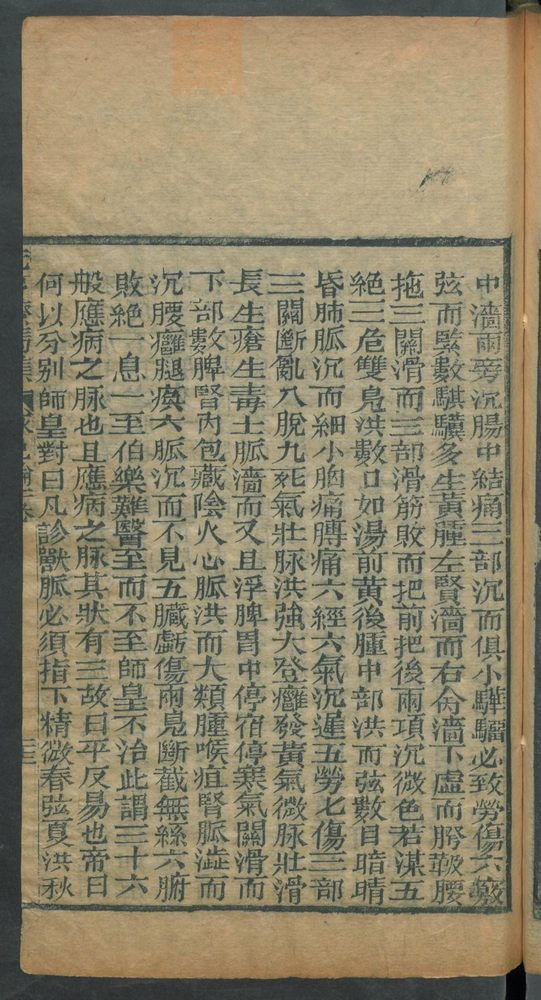 中濇兩旁沉腸中結痛三部沉而俱小驊騮必致勞傷六數
弦而緊數騏驥多生黃腫左賢濇而右命濇下虛而胯䩕腰
拖三關滑而三部滑筋敗而把前把後兩項沉微色若渫五
絕三危雙鳧洪數口如湯前黃後腫中部洪而弦數目暗睛
昏肺脉沉而細小胸痛膊痛六經六氣沉遲五勞七傷三部
三關斷亂八脫九死氣壯脉洪強大登癰發黃氣微脉壯滑
長生瘡生毒土脈濇而又且浮脾胃中停宿停寒氣關滑而
下部數脾腎內包藏陰火心脈洪而大類腫喉疽腎脈澁而
沉腰癱腿瘓六脈沉而不見五臟虧傷兩鳧斷截無絲六腑
敗絕一息一至伯樂難醫至而不至師皇不治此謂三十六
般應病之脉也且應病之脉其狀有三故曰平反易也帝曰
何以分別師皇對曰凡診獸脈必須指下精微春弦夏洪秋